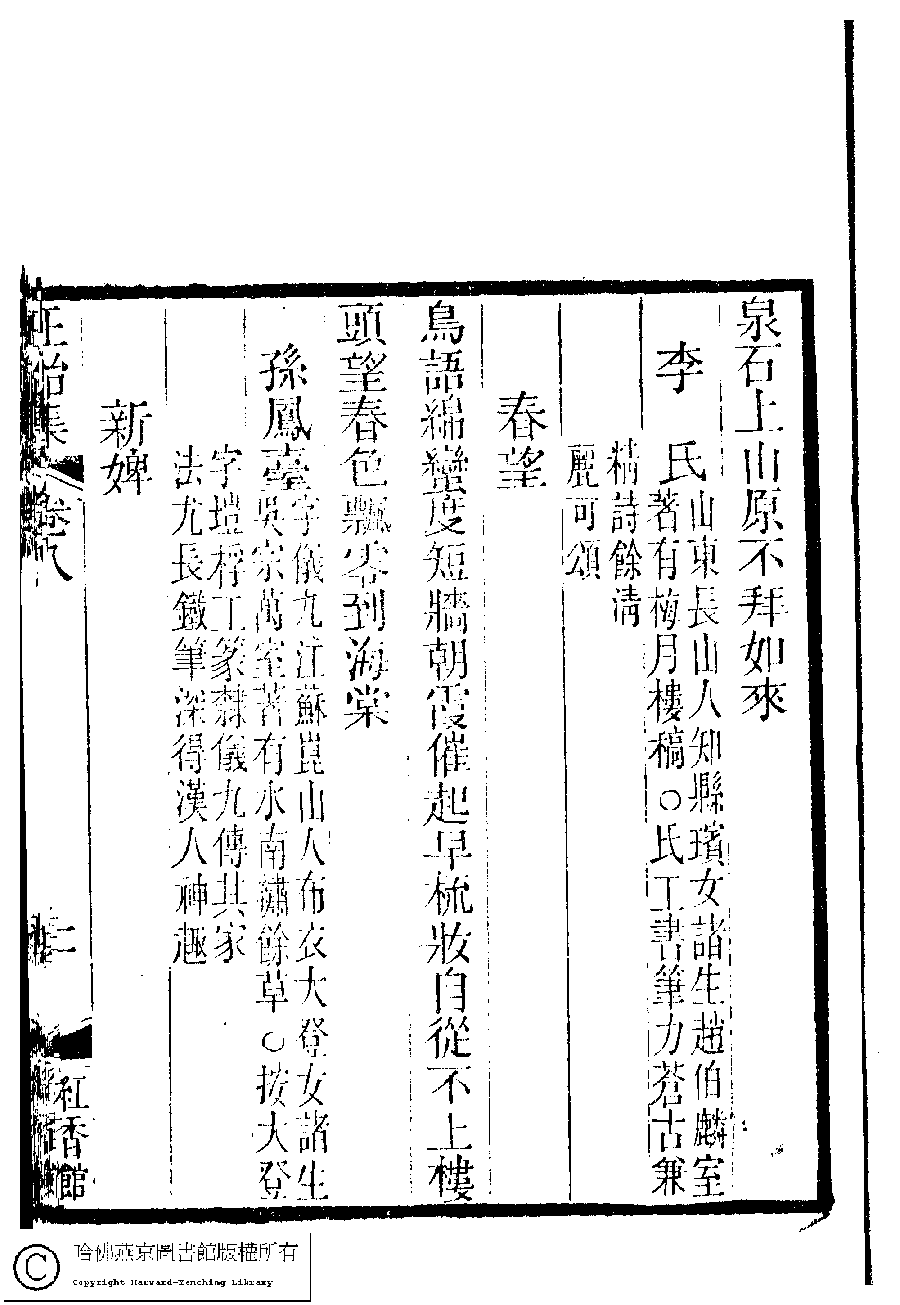 泉石上山原不拜如來
李氏
山東長山人知縣璸女諸生趙伯麟室
著有梅月樓稿○氏工書筆力蒼古兼
精詩餘清
麗可頌
春望
鳥語綿蠻度短牆朝霞催起早梳妝自從不上樓
頭望春色飄零到海棠
孫鳳臺
字儀九江蘇崑山人布衣大登女諸生
吳宗萬室著有水南繡餘草○按大登
字塏桴工篆隸儀九傳其家
法尤長鐵筆深得漢人神趣
新婢
正始集
卷八
紅香館
哈佛燕京圖書館版權所有
Copyright Harvard-Yenching Library